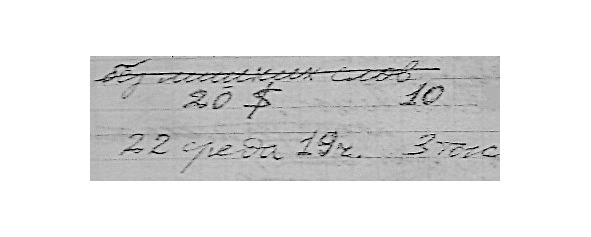 Без лишних слов
20 $ 10
22 среда 19ч. 3 тыс